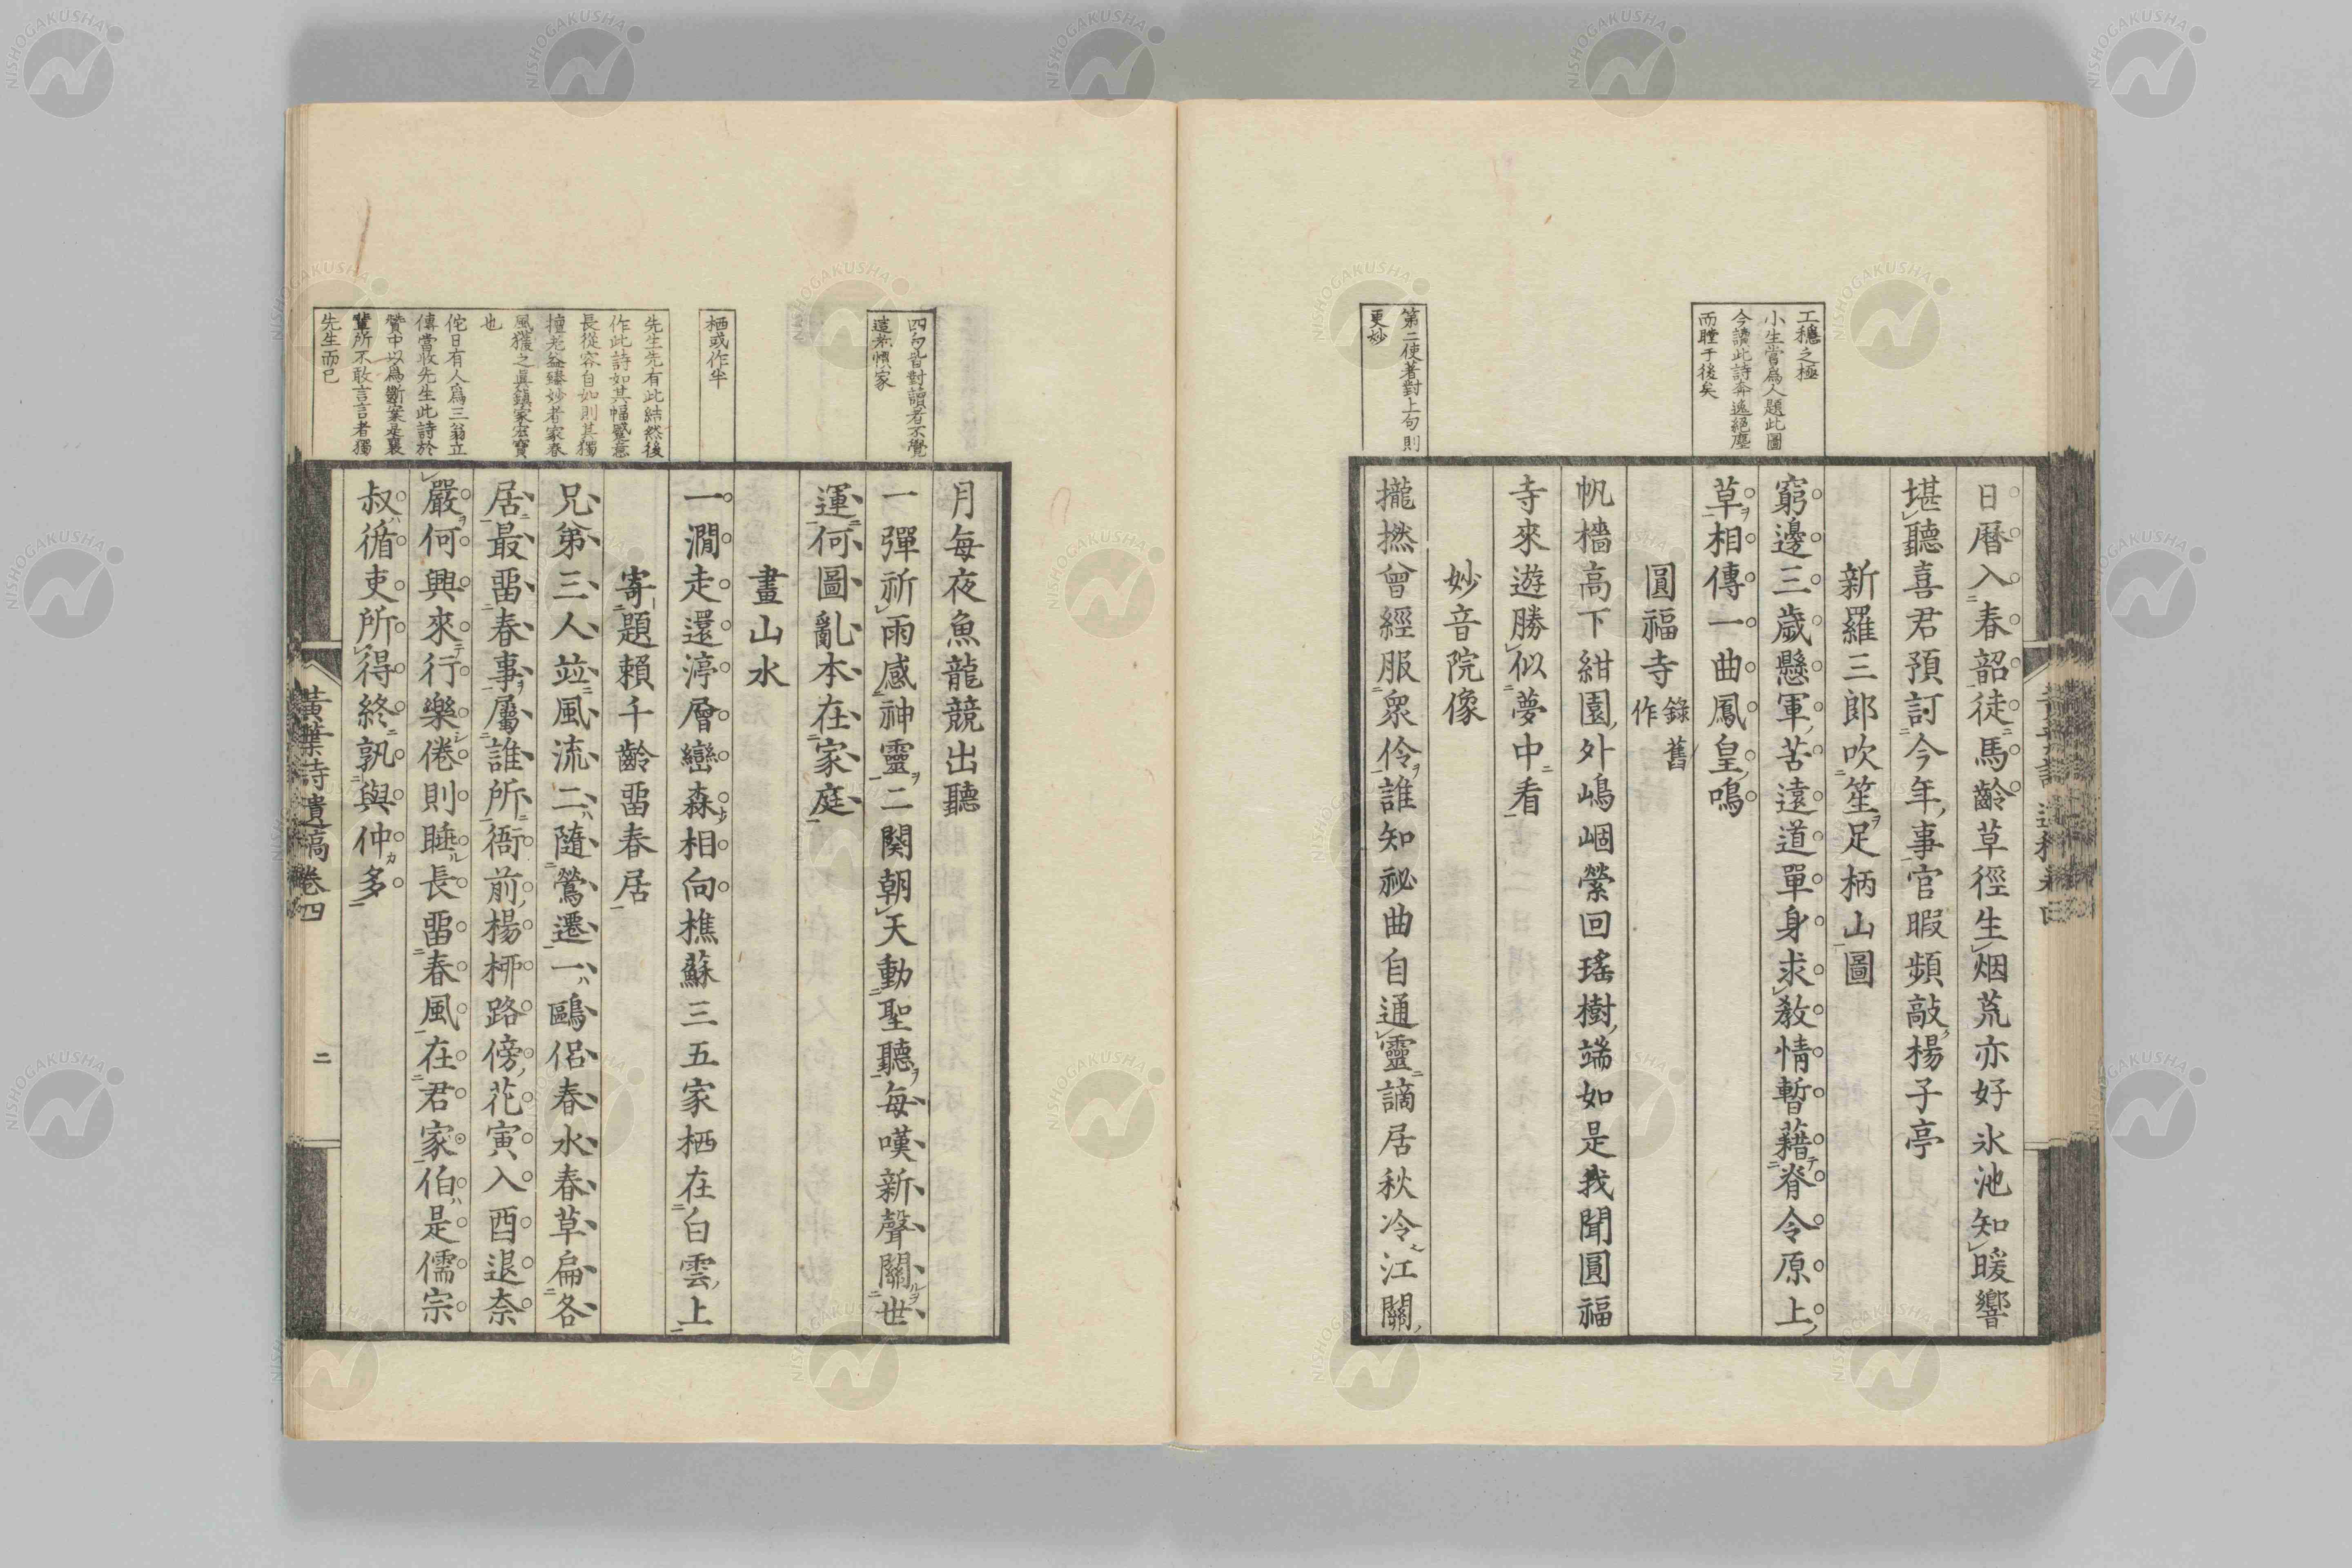 工穩之極
小生嘗爲人題此圖
今讀此詩奔逸絕塵
而瞠于後矣
第二使著對上句則
更妙
日曆入春韶徒馬齡草徑生烟荒亦好氷池知暖響
堪聽喜君預訂今年事官暇頻敲楊子亭
新羅三郎吹笙足柄山圖
窮邊三歲懸軍苦遠道單身求教情暫藉脊令原上
草相傳一曲鳳皇鳴
圓福寺 錄舊作
帆檣高下紺園外嶋崓縈回瑤樹端如是我聞圓福
寺來遊勝似夢中看
妙音院像
攏撚曾經服衆伶誰知祕曲自通靈謫居秋冷江關
四句皆對讀者不覺
這老慣家
栖或作半
先生先有此結然後
作此詩如其幅蹙意
長從容自如則其獨
擅老益臻妙者家春
風獲之眞鎮家宏寶
也
佗日有人爲三翁立
傳當收先生此詩於
贊中以爲斷案是襄
輩所不敢言言者獨
先生而已
月每夜魚龍競出聽
一彈祈雨感神靈二闋朝天動聖聽每嘆新聲關世
運何圖亂本在家庭
畫山水
一澗走還渟層巒森相向樵蘇三五家栖在白雲上
寄題賴千齡畱春居
兄弟三人竝風流二隨鶯遷一鷗侶春水春草扁各
居最畱春事屬誰所衙前楊桺路傍花寅入酉退奈
嚴何興來行樂倦則睡長畱春風在君家伯是儒宗
叔循吏所得終孰與仲多
黃葉詩遺稿卷四
二